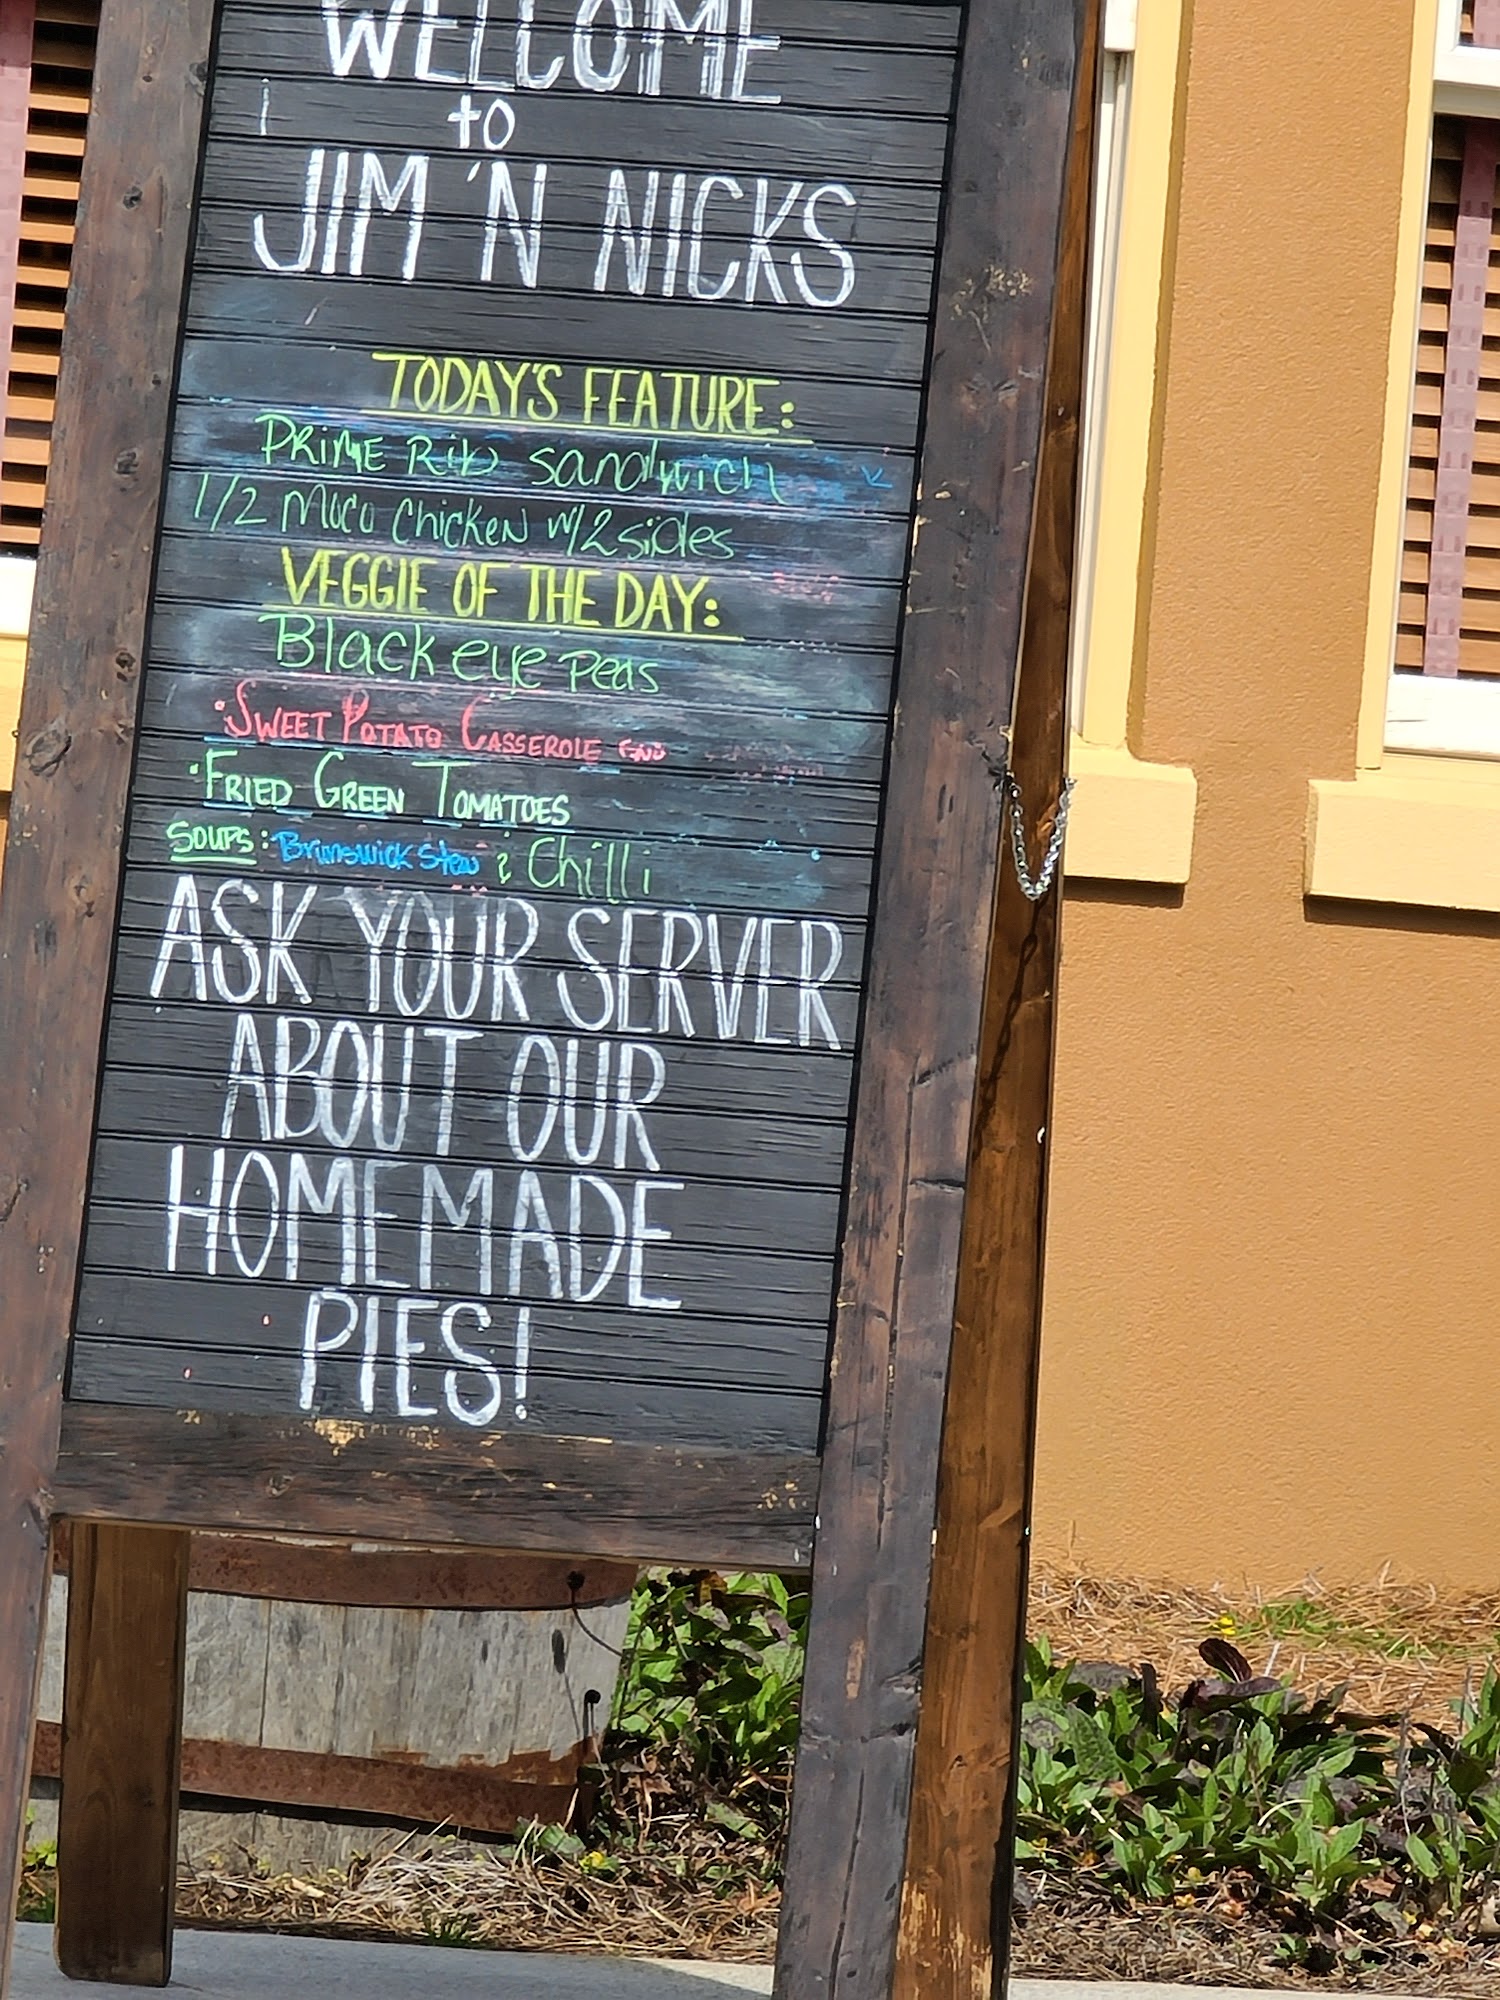 WELCOME
to
JIM 'N NICKS
TODAY'S FEATURE:
PRiME Rib sandwich
1/2 MoCo Chicken w/2 sides
VEGGIE OF THE DAY:
Black eye Peas
·SWEET POTATO CASSEROLE
·FRIED GREEN TOMATOES
SOUPS: Brunswick Stew & Chilli
ASK YOUR SERVER
ABOUT OUR
HOMEMADE
PIES!